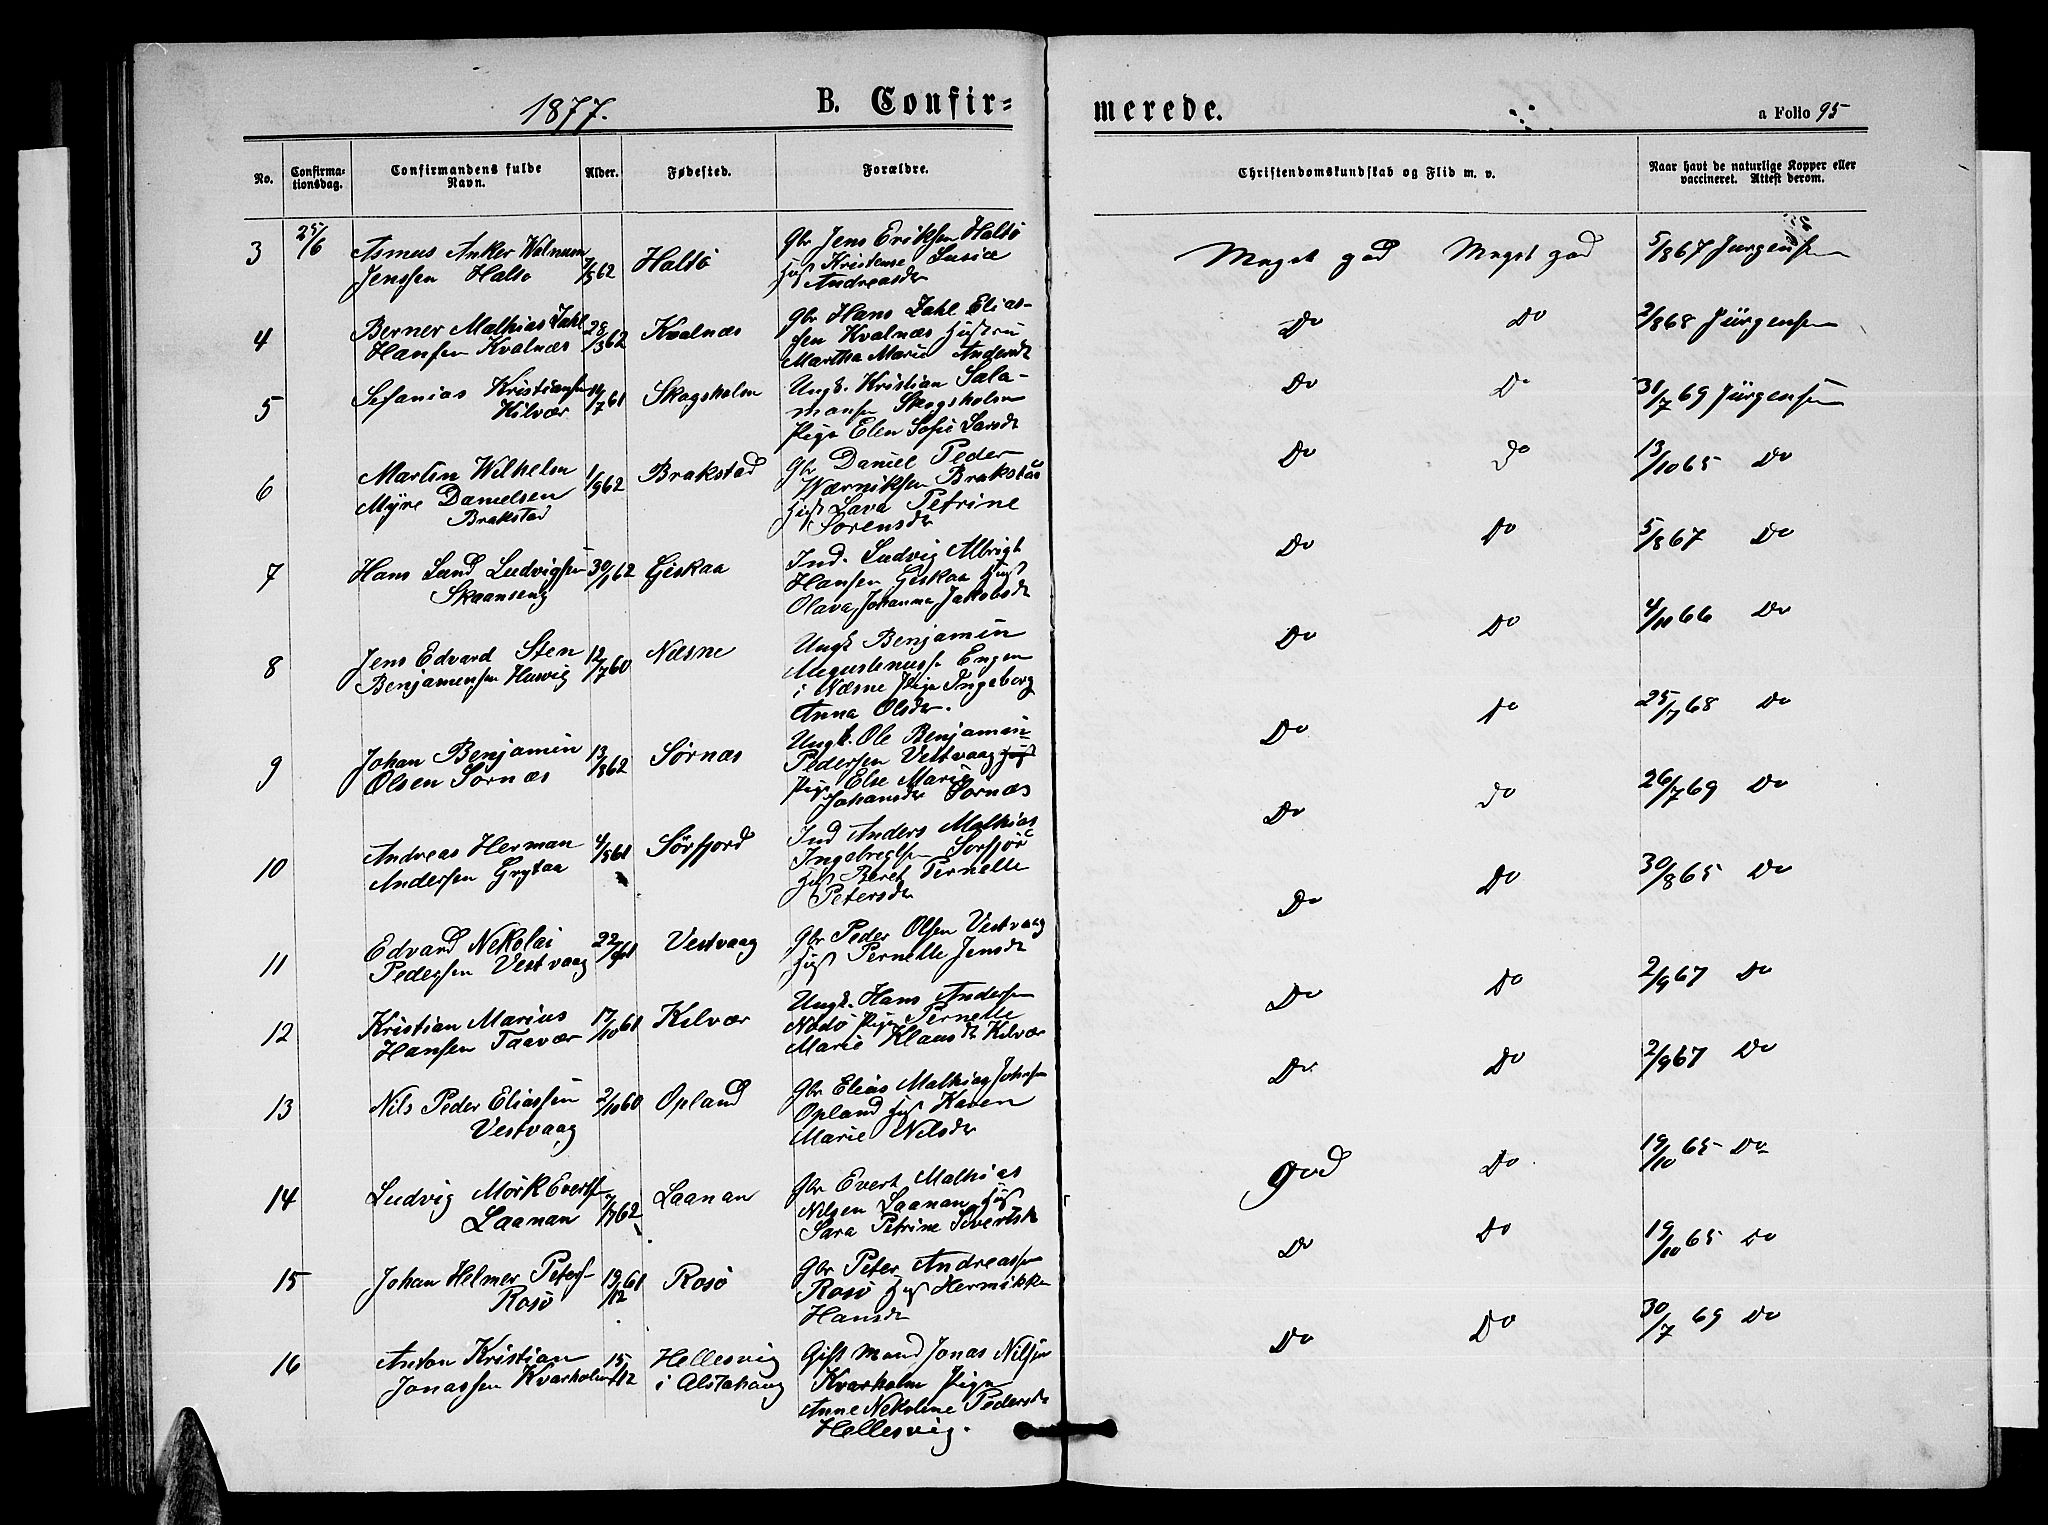 1877.
B. Confir=
merede.
a Folio 95
No.
Confirma-
tionsdag.
Confirmandens fulde
Navn.
Alder.
Fødested.
Forældre.
Christendomskundskab og Flid m. v.
Naar havt de naturlige Kopper eller
vaccineret. Attest derom.
3 25/6 Asmus Anker Walnum 7/5 62 Haltö Gbr Jens Eriksen Haltö Meget god Meget god 5/8 67 Jurgensen
Jenssen Haltö Hust Kristense Lusia
Andreasdr
4 Berner Mathias Zahl 28/3 62 Kvalnæs Gbr Hans Zahl Elias- Do Do 2/8 68 Jürgensen
Hansen Kvalnæs sen Kvalnæs Hustru
Martha Marie Andersdt
5 Sefanias Kristiansen 14/7 61 Skogsholm Ungk. Kristian Sala- Do Do 31/7 69 Jürgensen
Kilvær mansen Skogsholm
Pige Elen Sofie Larsdt
6 Martin Wilhelm 1/9 62 Brakstad Gbr Daniel Peder Do Do 13/10 65 Do
Myre Danielsen Wærniksen Brakstad
Brakstad Hust Lava Petrine
Sörensdr
7 Hans Lund Ludvigsen 30/1 62 Giskaa Ind. Ludvig Albrigt Do Do 5/8 67 Do
Skaanseng Hansen Giskaa Hust
Olava Johanna Jakobsdt
8 Jens Edvard Sten 12/7 60 Næsne Ungk Benjamin Do Do 4/10 66 Do
Benjaminsen Husvig Augustenussen Engen
i Næsne Pige Ingeborg
Anna Olsdr.
9 Johan Benjamin 13/8 62 Sørnæs Ungk. Ole Benjamin Do Do 25/7 68 Do
Olsen Sörnæs Pedersen Vestvaag Hust
Pige Else Marie
Johansdr Sörnæs
10 Andreas Herman 4/5 61 Sörfjord Ind Anders Mathias Do Do 26/7 69 Do
Andersen Grytaa Ingebregtsen Sörfjor
Hust Beret Pernelle
Petersdr
11 Edvard Nekolai 22/9 61 Vestvaag Gbr Peder Olsen Vestvaag Do Do 30/8 65 Do
Pedersen Vestvaag Hust Pernelle Jensdt
12 Kristian Marius 17/10 61 Kilvær Ungk. Hans Andersen Do Do 2/9 67 Do
Hansen Taavær Nödö Pige Pernelle
Marie Klausdt Kilvær
13 Nils Peder Eliassen 2/10 60 Opland Gbr Elias Mathias Johnsen Do Do 2/9 67 Do
Vestvaag Opland Hust Karen
Marie Nilsdr
14 Ludvig Mörk Evertsen /7 62 Laanan Gbr Evert Mathias god Do 19/10 65 Do
Laanan Nilsen Laanan Hust
Sara Petrine Sivertsdt
15 Johan Helmer Peters- 19/12 61 Rosö Gbr Peter Andreassen Do Do 19/10 65 Do
Rosö Rosö Hust Hermikke
Hansdr
16 Anton Kristian 15/ Hellesvig Gift Mand Jonas Nilsen Do Do 30/7 69 Do
Jonassen Kvarholm i Alstahaug Kvarholm Pige
Anne Nekoline Pedersdr
Hellesvig.